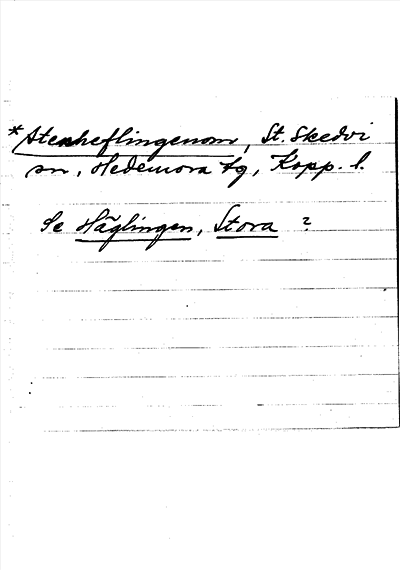 *Stenheflingenom, St. Skedvi
sn, Hedemora tg, Kopp. l.
Se Häglingen, Stora ?